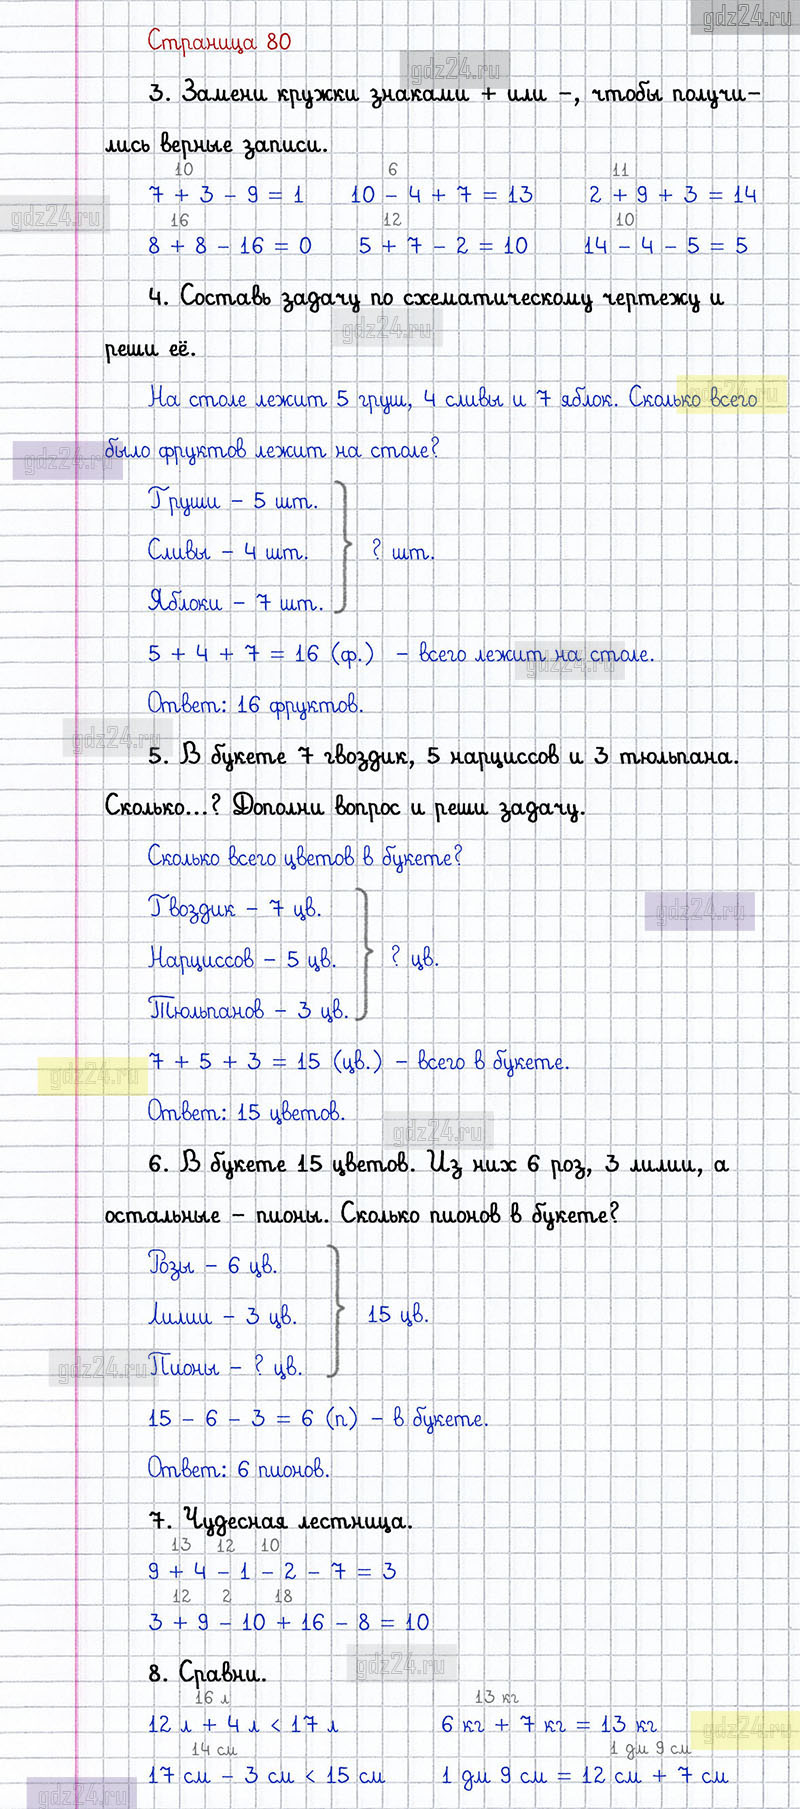 gdz24.ru
Страница 80
gdz24.ru
3. Замени кружки знаками + или –, чтобы получи-
лись верные записи.
10 6 11
7 + 3 – 9 = 1 10 – 4 + 7 = 13 2 + 9 + 3 = 14
gdz24.ru
16 12 10
8 + 8 – 16 = 0 5 + 7 – 2 = 10 14 – 4 – 5 = 5
4. Составь задачу по схематическому чертежу и
gdz24.ru
реши её.
gdz24.ru
На столе лежит 5 груш, 4 сливы и 7 яблок. Сколько всего
было фруктов лежит на столе?
gdz24.ru
Груши – 5 шт.
Сливы – 4 шт. ? шт.
Яблоки – 7 шт.
5 + 4 + 7 = 16 (ф.) – всего лежит на столе.
gdz24.ru
Ответ: 16 фруктов.
gdz24.ru
5. В букете 7 гвоздик, 5 нарциссов и 3 тюльпана.
Сколько...? Дополни вопрос и реши задачу.
Сколько всего цветов в букете?
Гвоздик – 7 цв.
gdz24.ru
Нарциссов – 5 цв. ? цв.
Тюльпанов – 3 цв.
7 + 5 + 3 = 15 (цв.) – всего в букете.
gdz24.ru
Ответ: 15 цветов.
gdz24.ru
6. В букете 15 цветов. Из них 6 роз, 3 лилии, а
остальные – пионы. Сколько пионов в букете?
Розы – 6 цв.
Лилии – 3 цв. 15 цв.
Пионы – ? цв.
gdz24.ru
15 – 6 – 3 = 6 (п) – в букете.
Ответ: 6 пионов.
7. Чудесная лестница.
13 12 10
9 + 4 – 1 – 2 – 7 = 3
12 2 18
3 + 9 – 10 + 16 – 8 = 10
8. Сравни.
gdz24.ru
16 л 13 кг
12 л + 4 л < 17 л 6 кг + 7 кг = 13 кг
gdz24.ru
14 см 1 дм 9 см
17 см – 3 см < 15 см 1 дм 9 см = 12 см + 7 см
gdz24.ru